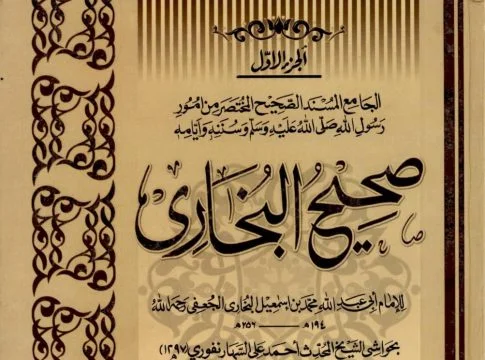 الجزء الاول
الجامع المسند الصحيح المختصر من امور
رسول الله صلى الله عليه وسلم وسننه وايامه
صحيح البخاري
للإمام أبي عبد الله محمد بن اسمعيل البخاري الجعفي رحمه الله
١٩٤ھ ــــ ٢٥٦ھ
بحواشي الشيخ المحدث أحمد علي السهارنفوري (١٢٩٧ھ)